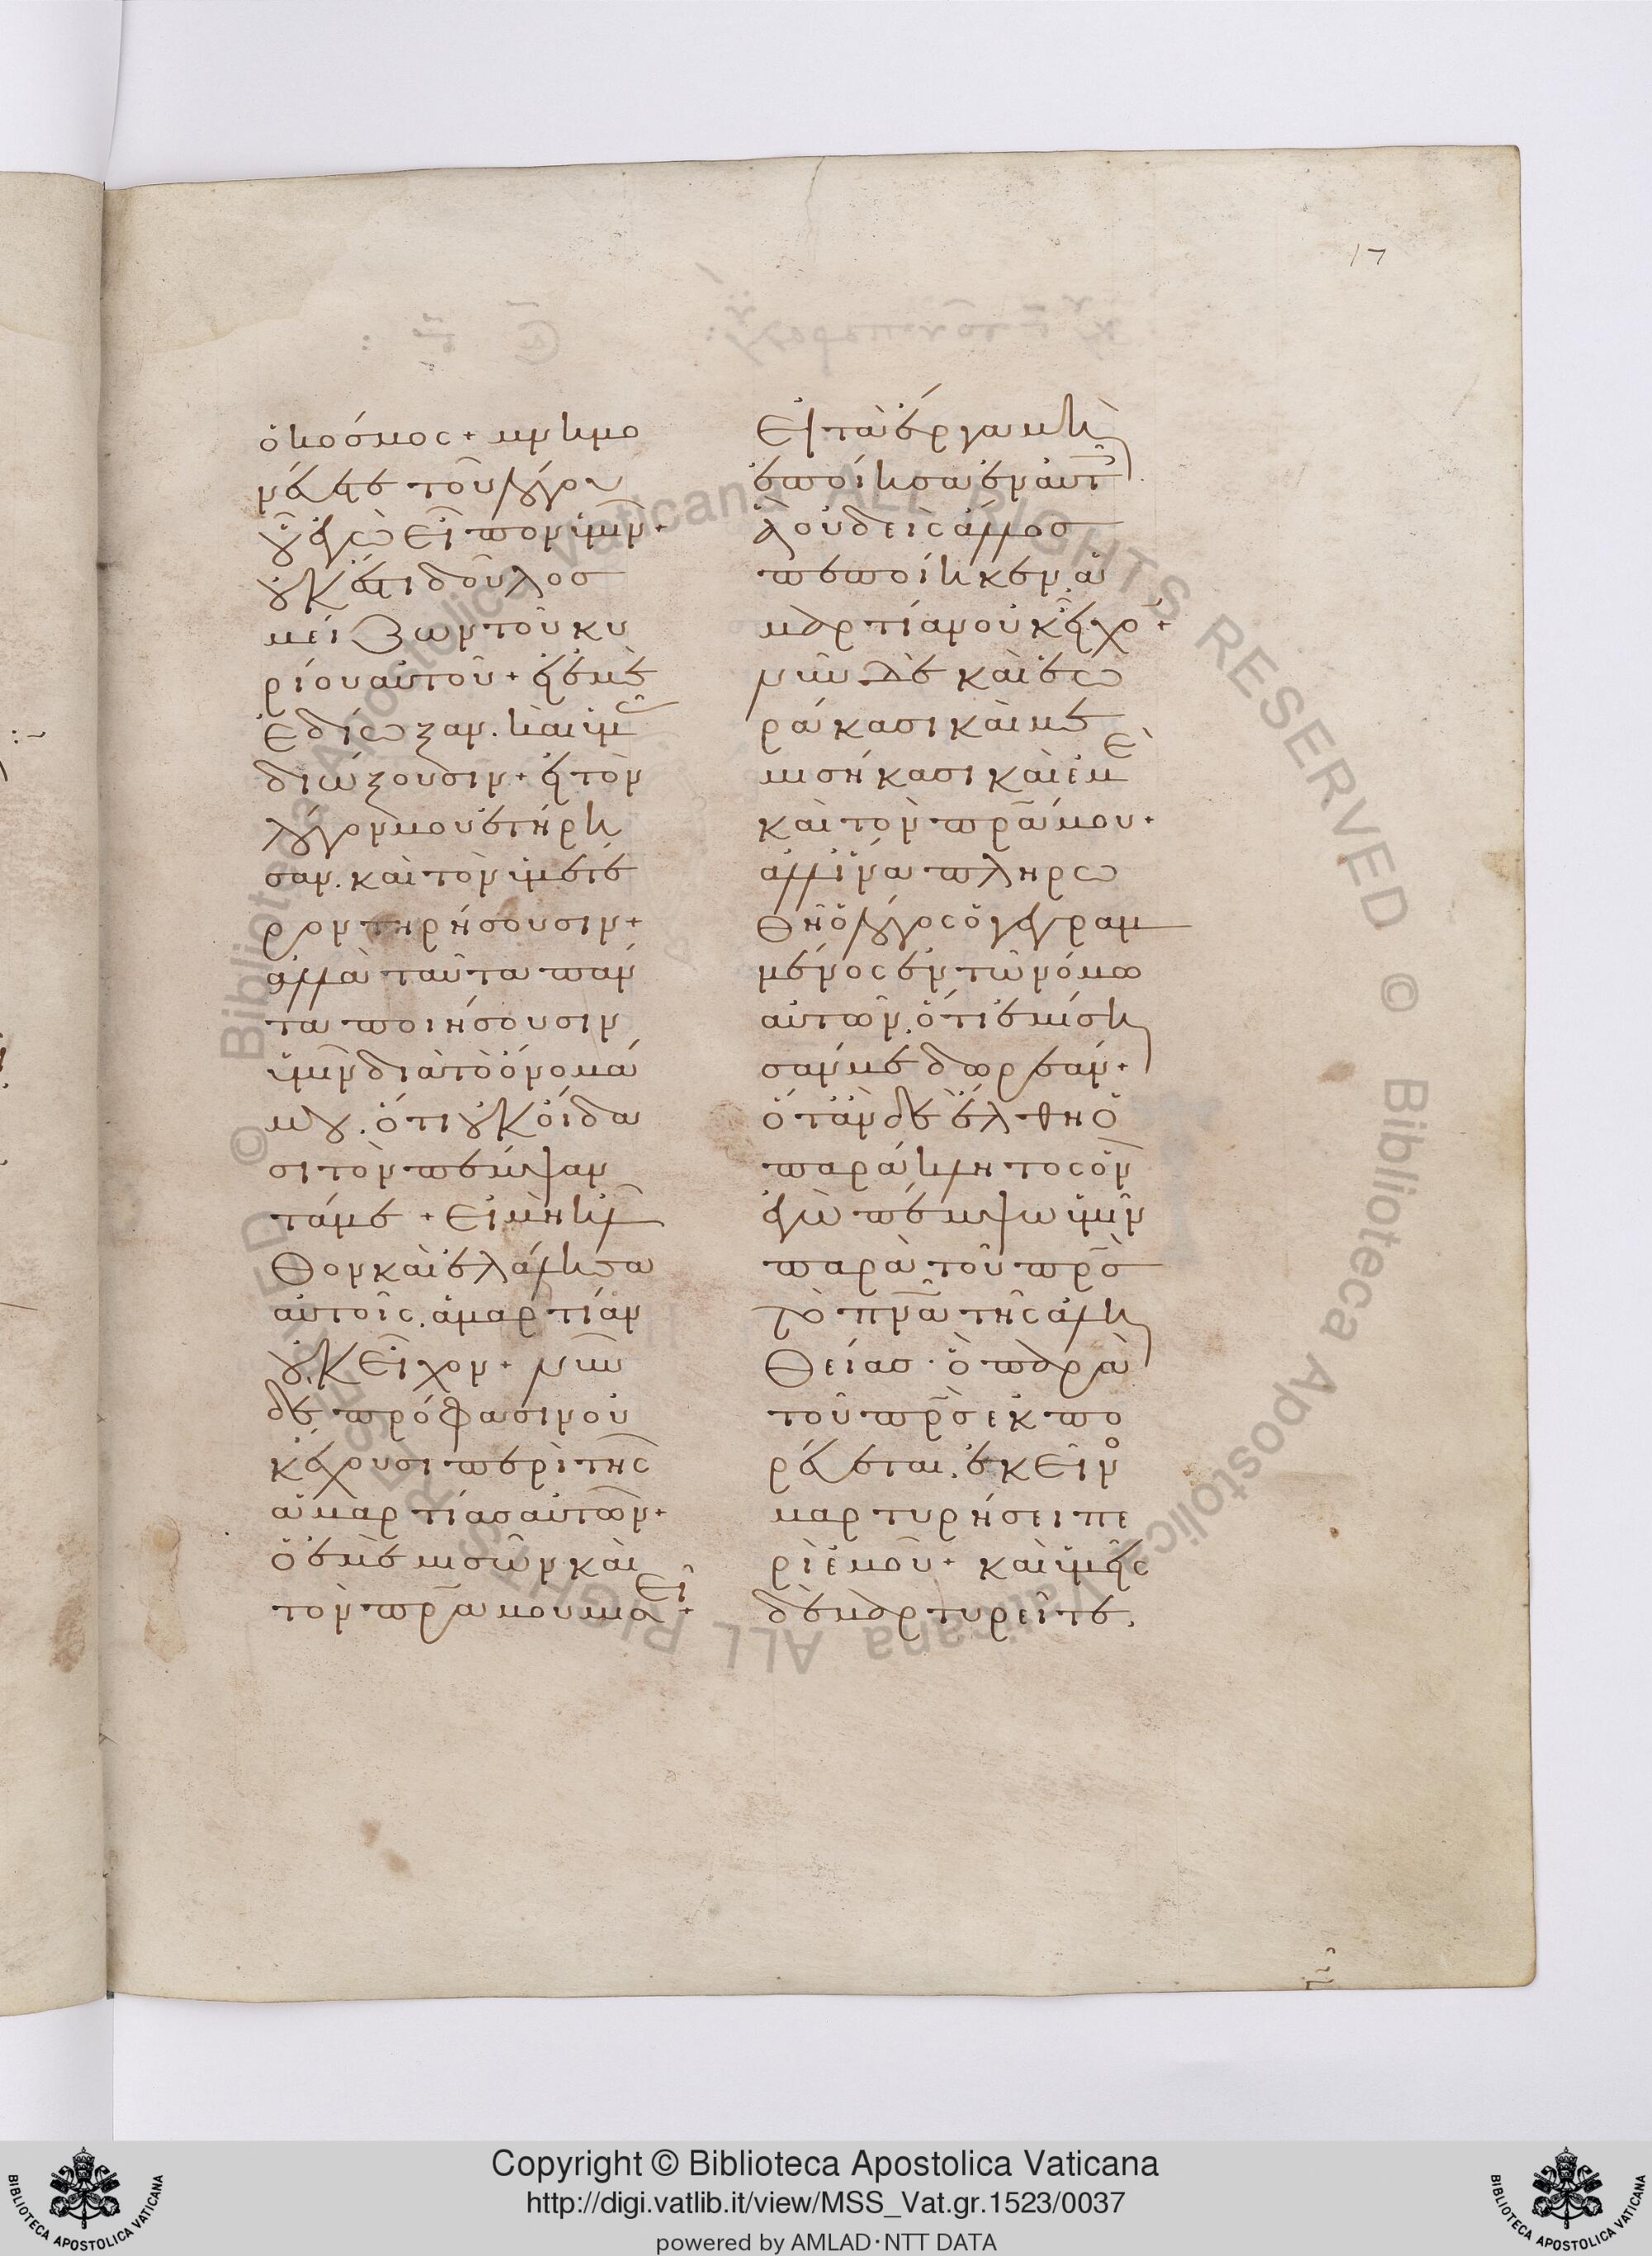 17
ὁ κόσμος + μνημο
νεύετε τοῦ λόγου
οὗ ἐγὼ εἶπον ὑμῖν +
οὐκ ἔστι δοῦλος
μείζων τοῦ κυ
ρίου αὐτοῦ + εἰ ἐμὲ
ἐδίωξαν. καὶ ὑμᾶς
διώξουσιν + εἰ τὸν
λόγον μου ἐτήρη
σαν. καὶ τὸν ὑμέτε
ρον τηρήσουσιν +
ἀλλὰ ταῦτα πάν
τα ποιήσουσιν
ὑμῖν διὰ τὸ ὄνομά
μου. ὅτι οὐκ οἴδα
σι τὸν πέμψαν
τά με + εἰ μὴ ἦλ
θον καὶ ἐλάλησα
αὐτοῖς. ἁμαρτίαν
οὐκ εἶχον + νῦν
δὲ πρόφασιν οὐ
κ ἔχουσι περὶ τῆς
ἁμαρτίας αὐτῶν +
ὁ ἐμὲ μισῶν καὶ
τὸν πρ̅α μου μισεῖ +
εἰ τὰ ἔργα μὴ
ἐποίησα ἐν αὐτοῖς
ἃ οὐδεὶς ἄλλος
πεποίηκεν. ἁ
μαρτίαν οὐκ εἶχον +
νῦν δὲ καὶ ἑω
ράκασι καὶ με
μισήκασι καὶ ἐμὲ
καὶ τὸν πρ̅α μου +
ἀλλ ἵνα πληρω
θῆ ὁ λόγος ὁ γεγραμ
μένος ἐν τῶ νόμω
αὐτῶν. ὅτι ἐμίση
σάν με δωρεάν +
ὅταν δὲ ἔλθη ὁ
παράκλητος ὃν
ἐγὼ πέμψω ὑμῖν
παρὰ τοῦ πρ̅ς
τὸ πν̅α τῆς ἀλη
θείας. ὃ παρὰ
τοῦ πρ̅ς ἐκπο
ρεύεται. ἐκεῖνος
μαρτυρήσει πε
ρὶ ἐμοῦ + καὶ ὑμεῖς
δὲ μαρτυρεῖτε.
© Biblioteca Apostolica Vaticana ALL RIGHTS RESERVED © Biblioteca Apostolica Vaticana ALL RIGHTS RESERVED
BIBLIOTECA APOSTOLICA VATICANA
Copyright © Biblioteca Apostolica Vaticana
http://digi.vatlib.it/view/MSS_Vat.gr.1523/0037
powered by AMLAD·NTT DATA
BIBLIOTECA APOSTOLICA VATICANA